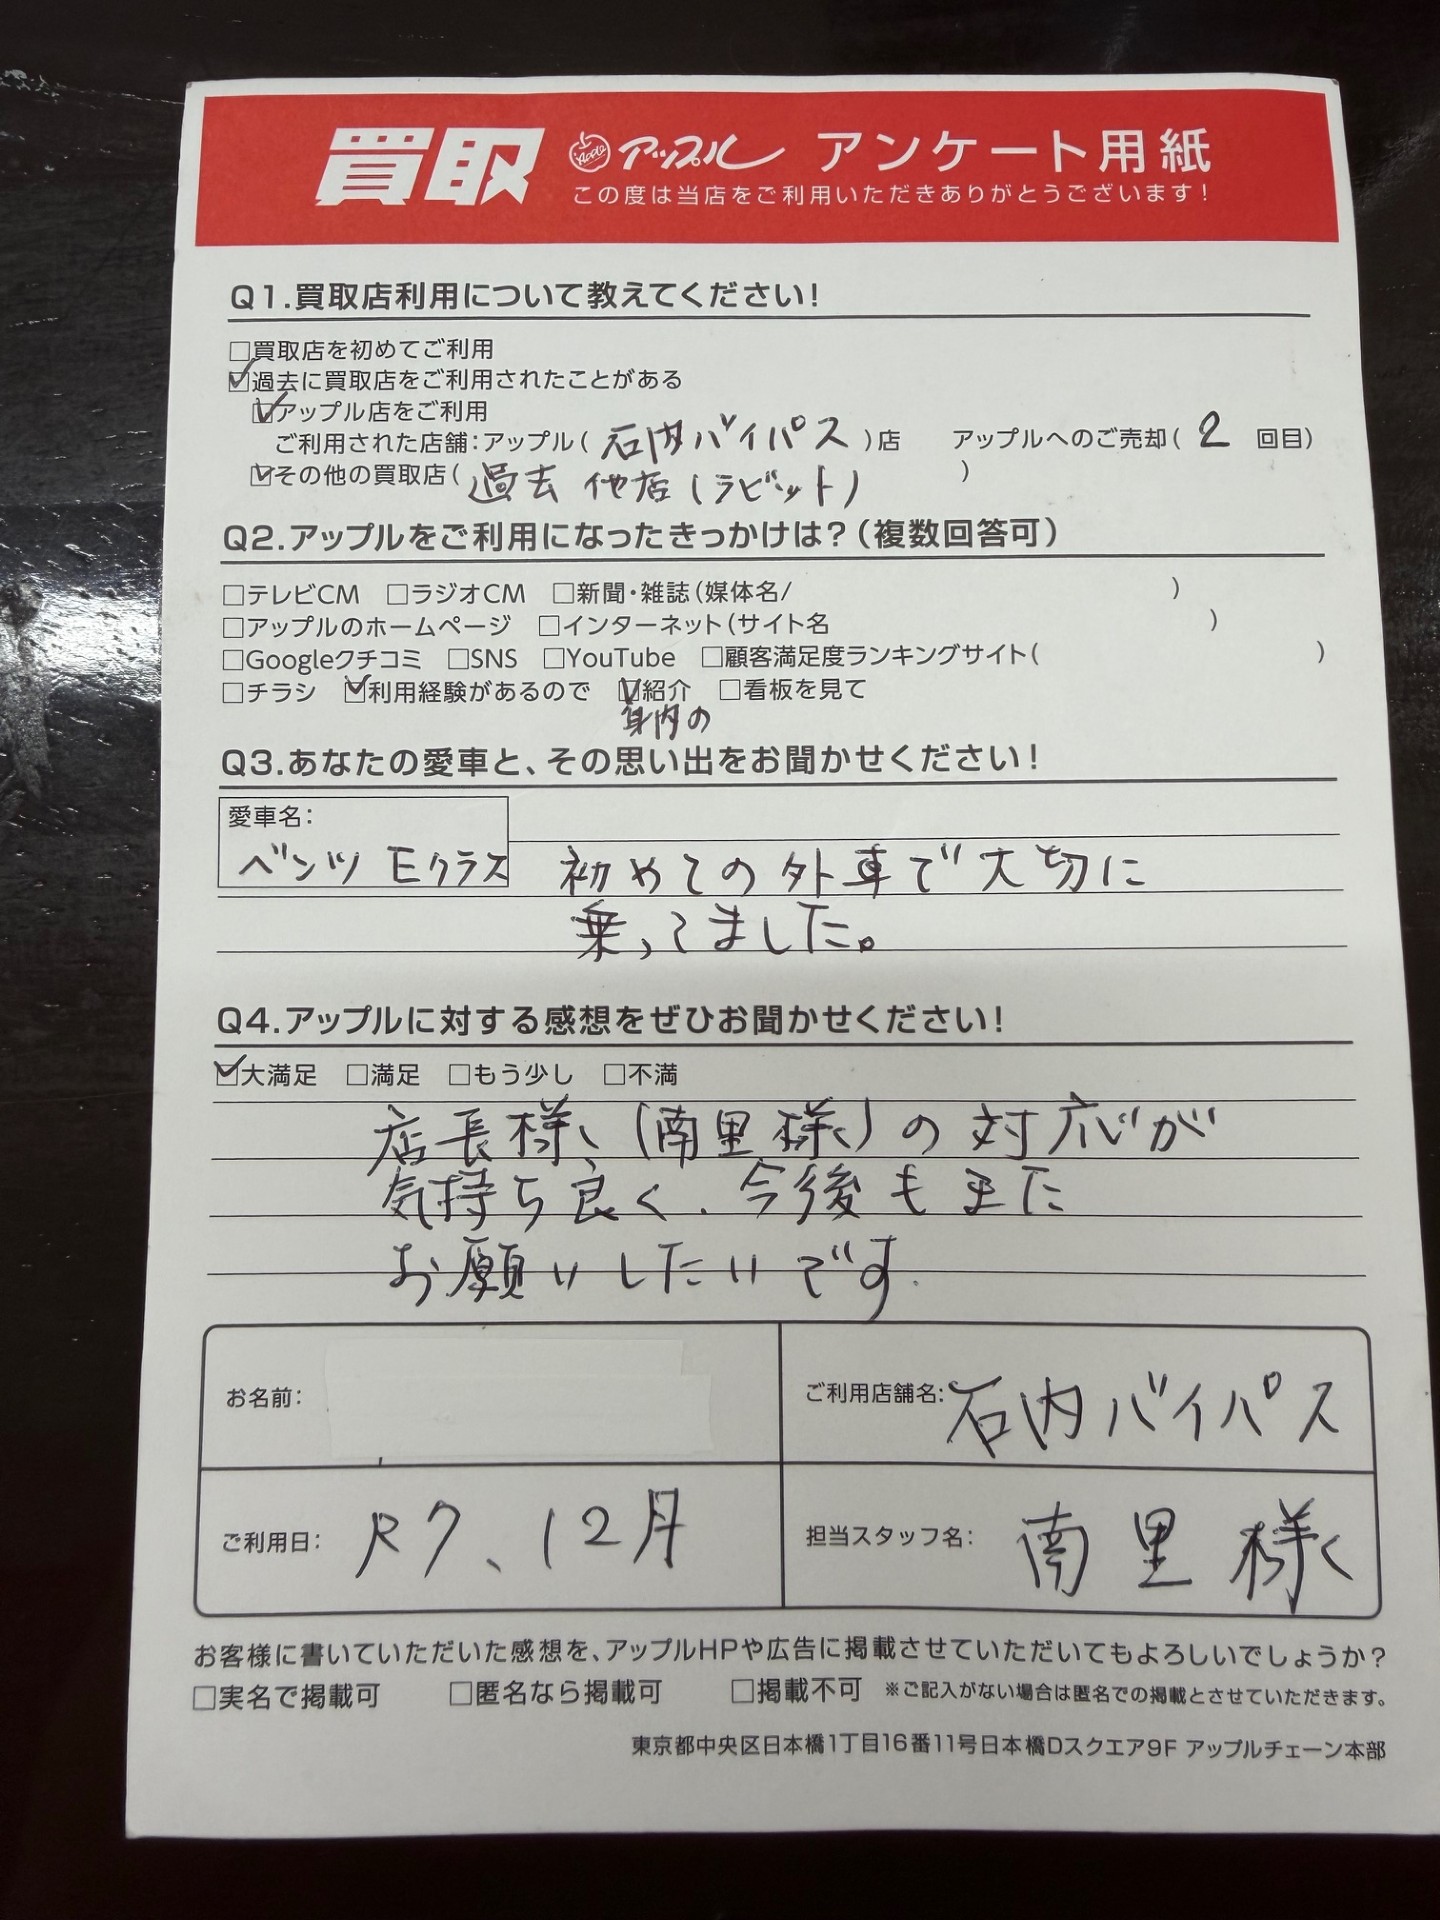 買取 Apple アップル アンケート用紙
この度は当店をご利用いただきありがとうございます!
Q1.買取店利用について教えてください!
□買取店を初めてご利用
☑過去に買取店をご利用されたことがある
☑アップル店をご利用
ご利用された店舗:アップル(石内バイパス)店 アップルへのご売却(2回目)
☑その他の買取店(過去 他店(ラビット))
Q2.アップルをご利用になったきっかけは?(複数回答可)
□テレビCM □ラジオCM □新聞・雑誌(媒体名/ )
□アップルのホームページ □インターネット(サイト名 )
□Googleクチコミ □SNS □YouTube □顧客満足度ランキングサイト( )
□チラシ ☑利用経験があるので ☑紹介 □看板を見て
身内の
Q3.あなたの愛車と、その思い出をお聞かせください!
愛車名:
ベンツ Eクラス 初めての外車で大切に
乗ってました。
Q4.アップルに対する感想をぜひお聞かせください!
☑大満足 □満足 □もう少し □不満
店長様、(南里様)の対応が
気持ち良く、今後もまた
お願いしたいです.
お名前: ご利用店舗名:石内バイパス
ご利用日: R7、12月 担当スタッフ名: 南里様
お客様に書いていただいた感想を、アップルHPや広告に掲載させていただいてもよろしいでしょうか?
□実名で掲載可 □匿名なら掲載可 □掲載不可 ※ご記入がない場合は匿名での掲載とさせていただきます。
東京都中央区日本橋1丁目16番11号日本橋Dスクエア9F アップルチェーン本部